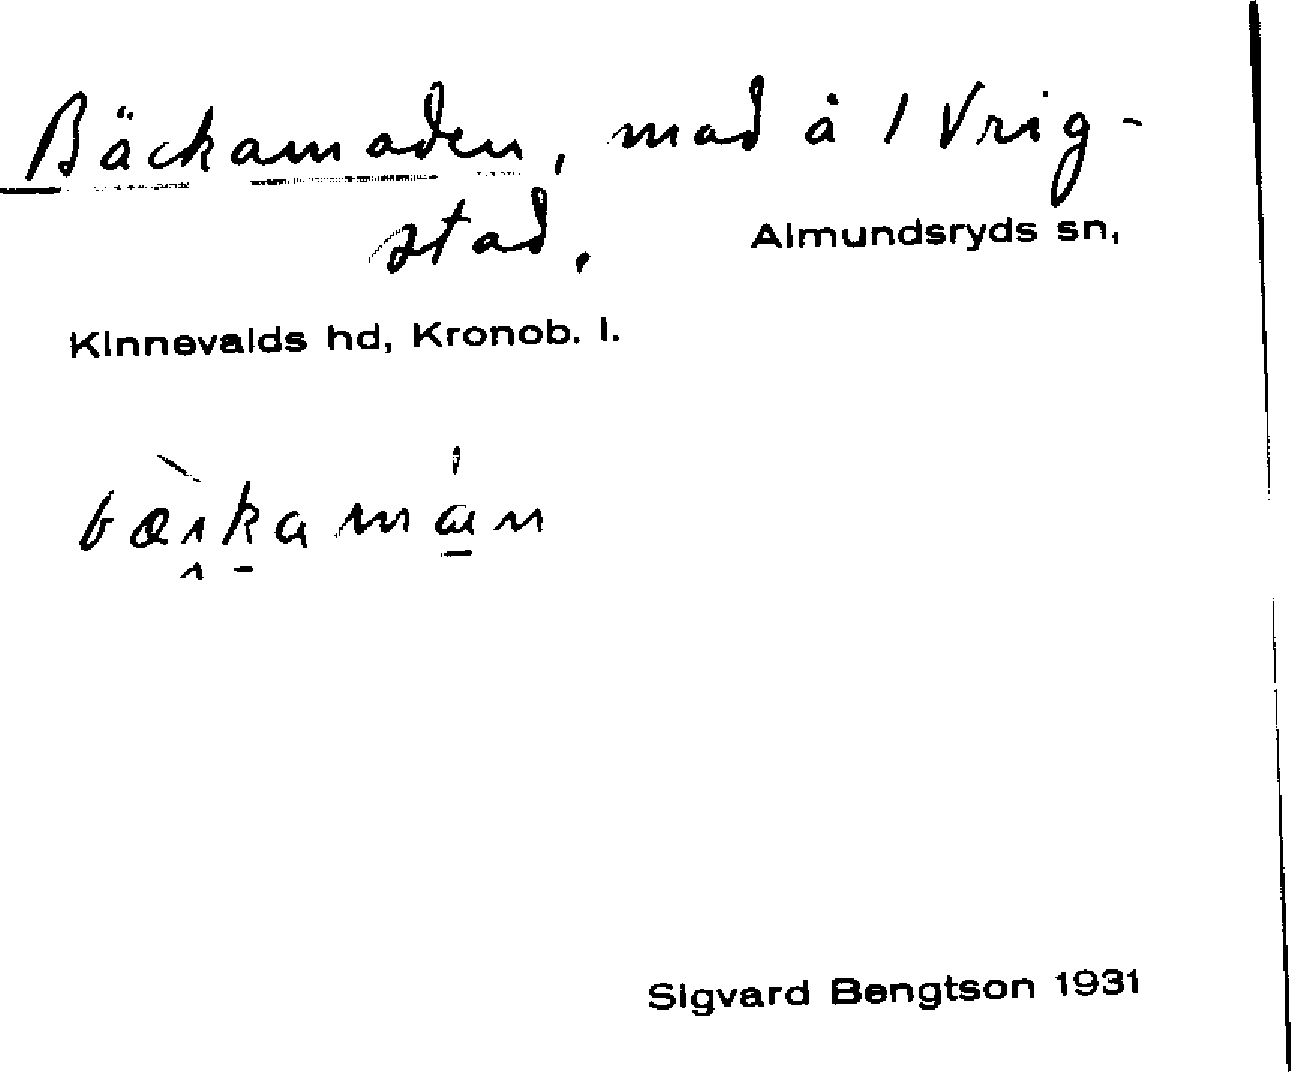 Bäckamaden, mad å 1 Vrig-
stad.
Almundsryds sn,
Kinnevalds hd, Kronob. l.
Sigvard Bengtson 1931